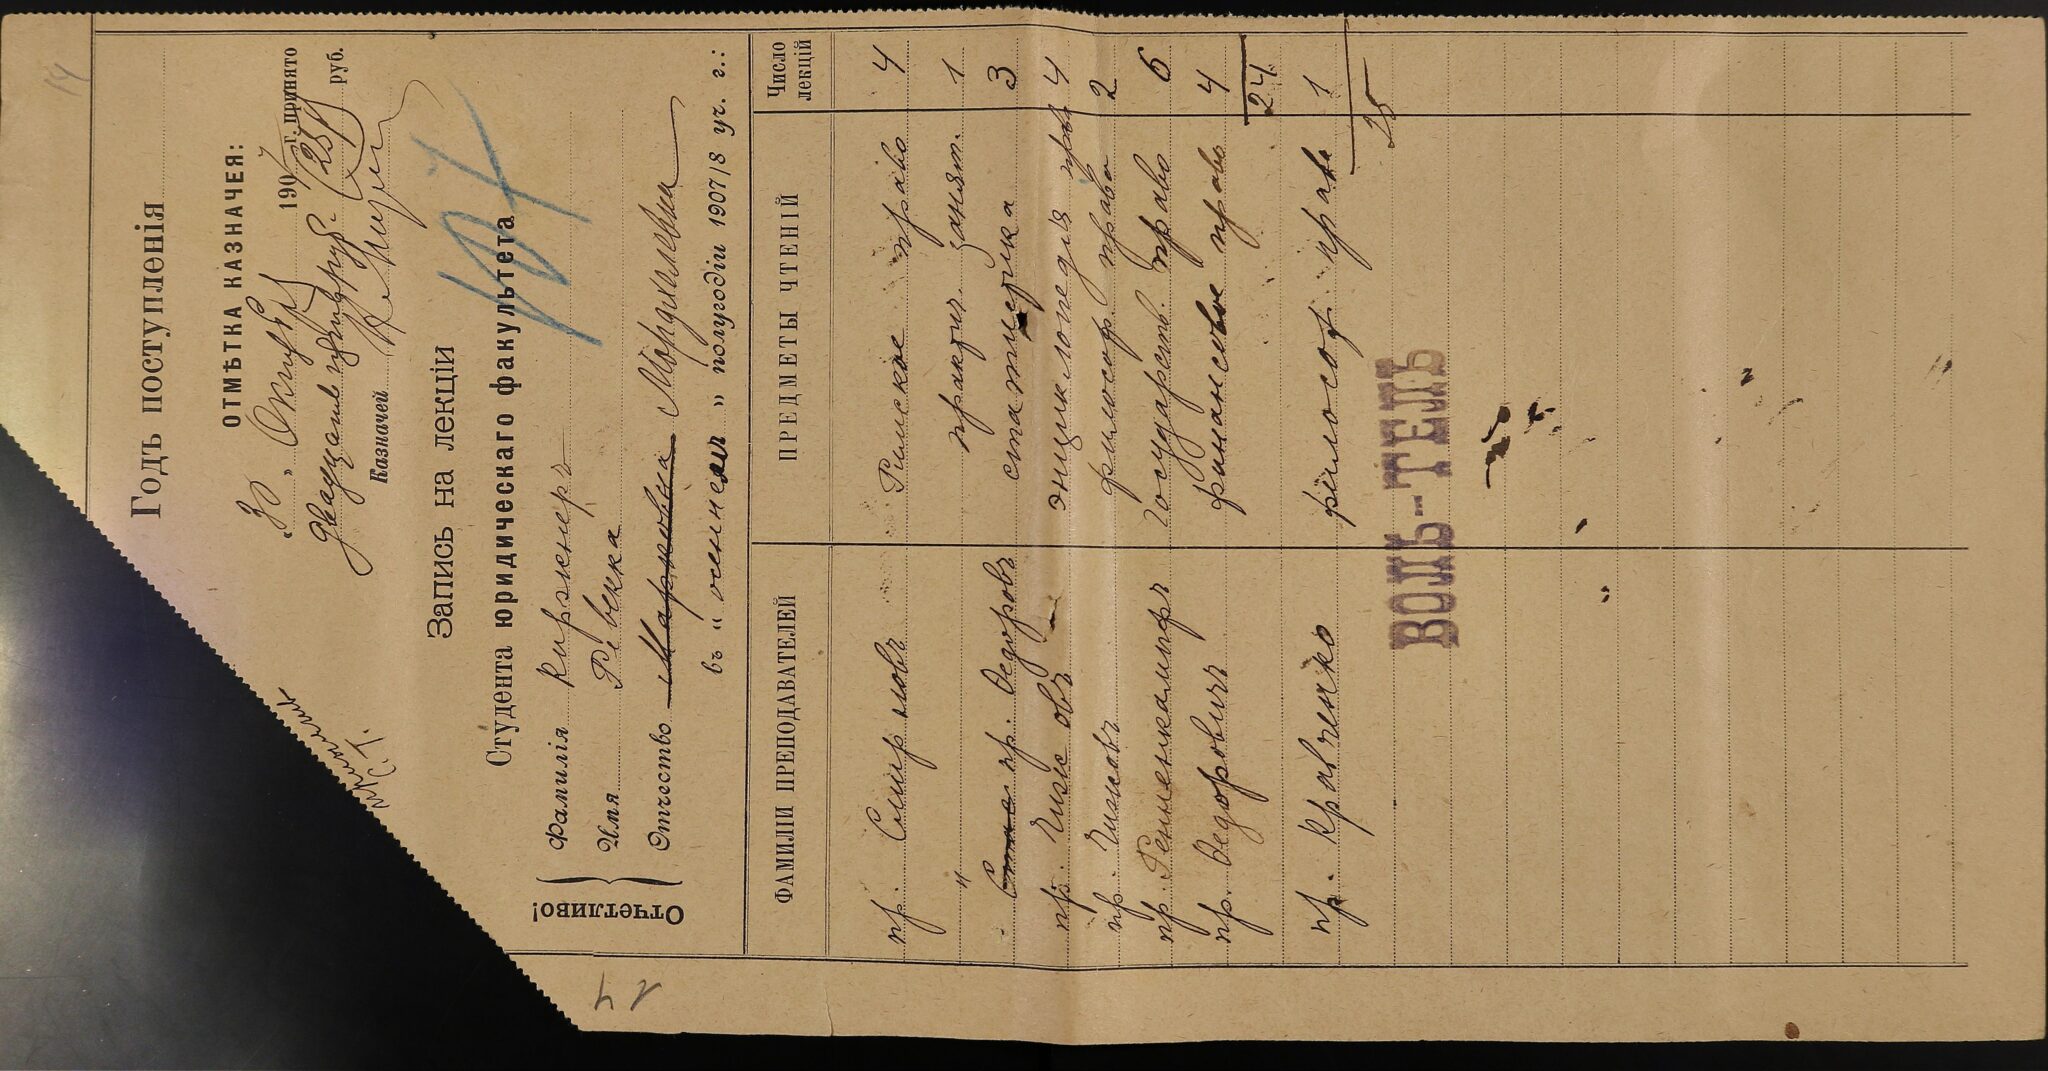 14
Годъ поступленія
ОТМѢТКА КАЗНАЧЕЯ:
„30“ Октября 1907 г. принято
двадцать пять руб. (25 р) руб.
Казначей
Запись на лекціи
Студента юридическаго факультета
Отчетливо!
Фамилія Киржнеръ
Имя Ревекка
Отчество Марковна Мордхилевна
въ „осеннем“ полугодіи 1907/8 уч. г.:
ФАМИЛІИ ПРЕПОДАВАТЕЛЕЙ ПРЕДМЕТЫ ЧТЕНІЙ Число лекцій
пр. Смирновъ Римское право 4
" практич. занят. 1
пр. Ѳедоровъ статистика 3
пр. Чижовъ энциклопедія права 4
пр. Чижовъ философ. права 2
пр. Ренненкампфъ государств. право 6
пр. Ѳедоровичъ финансовое право 4
24
пр. Кравченко философ права 1
25
ВОЛЬ-ТЕЛЬ